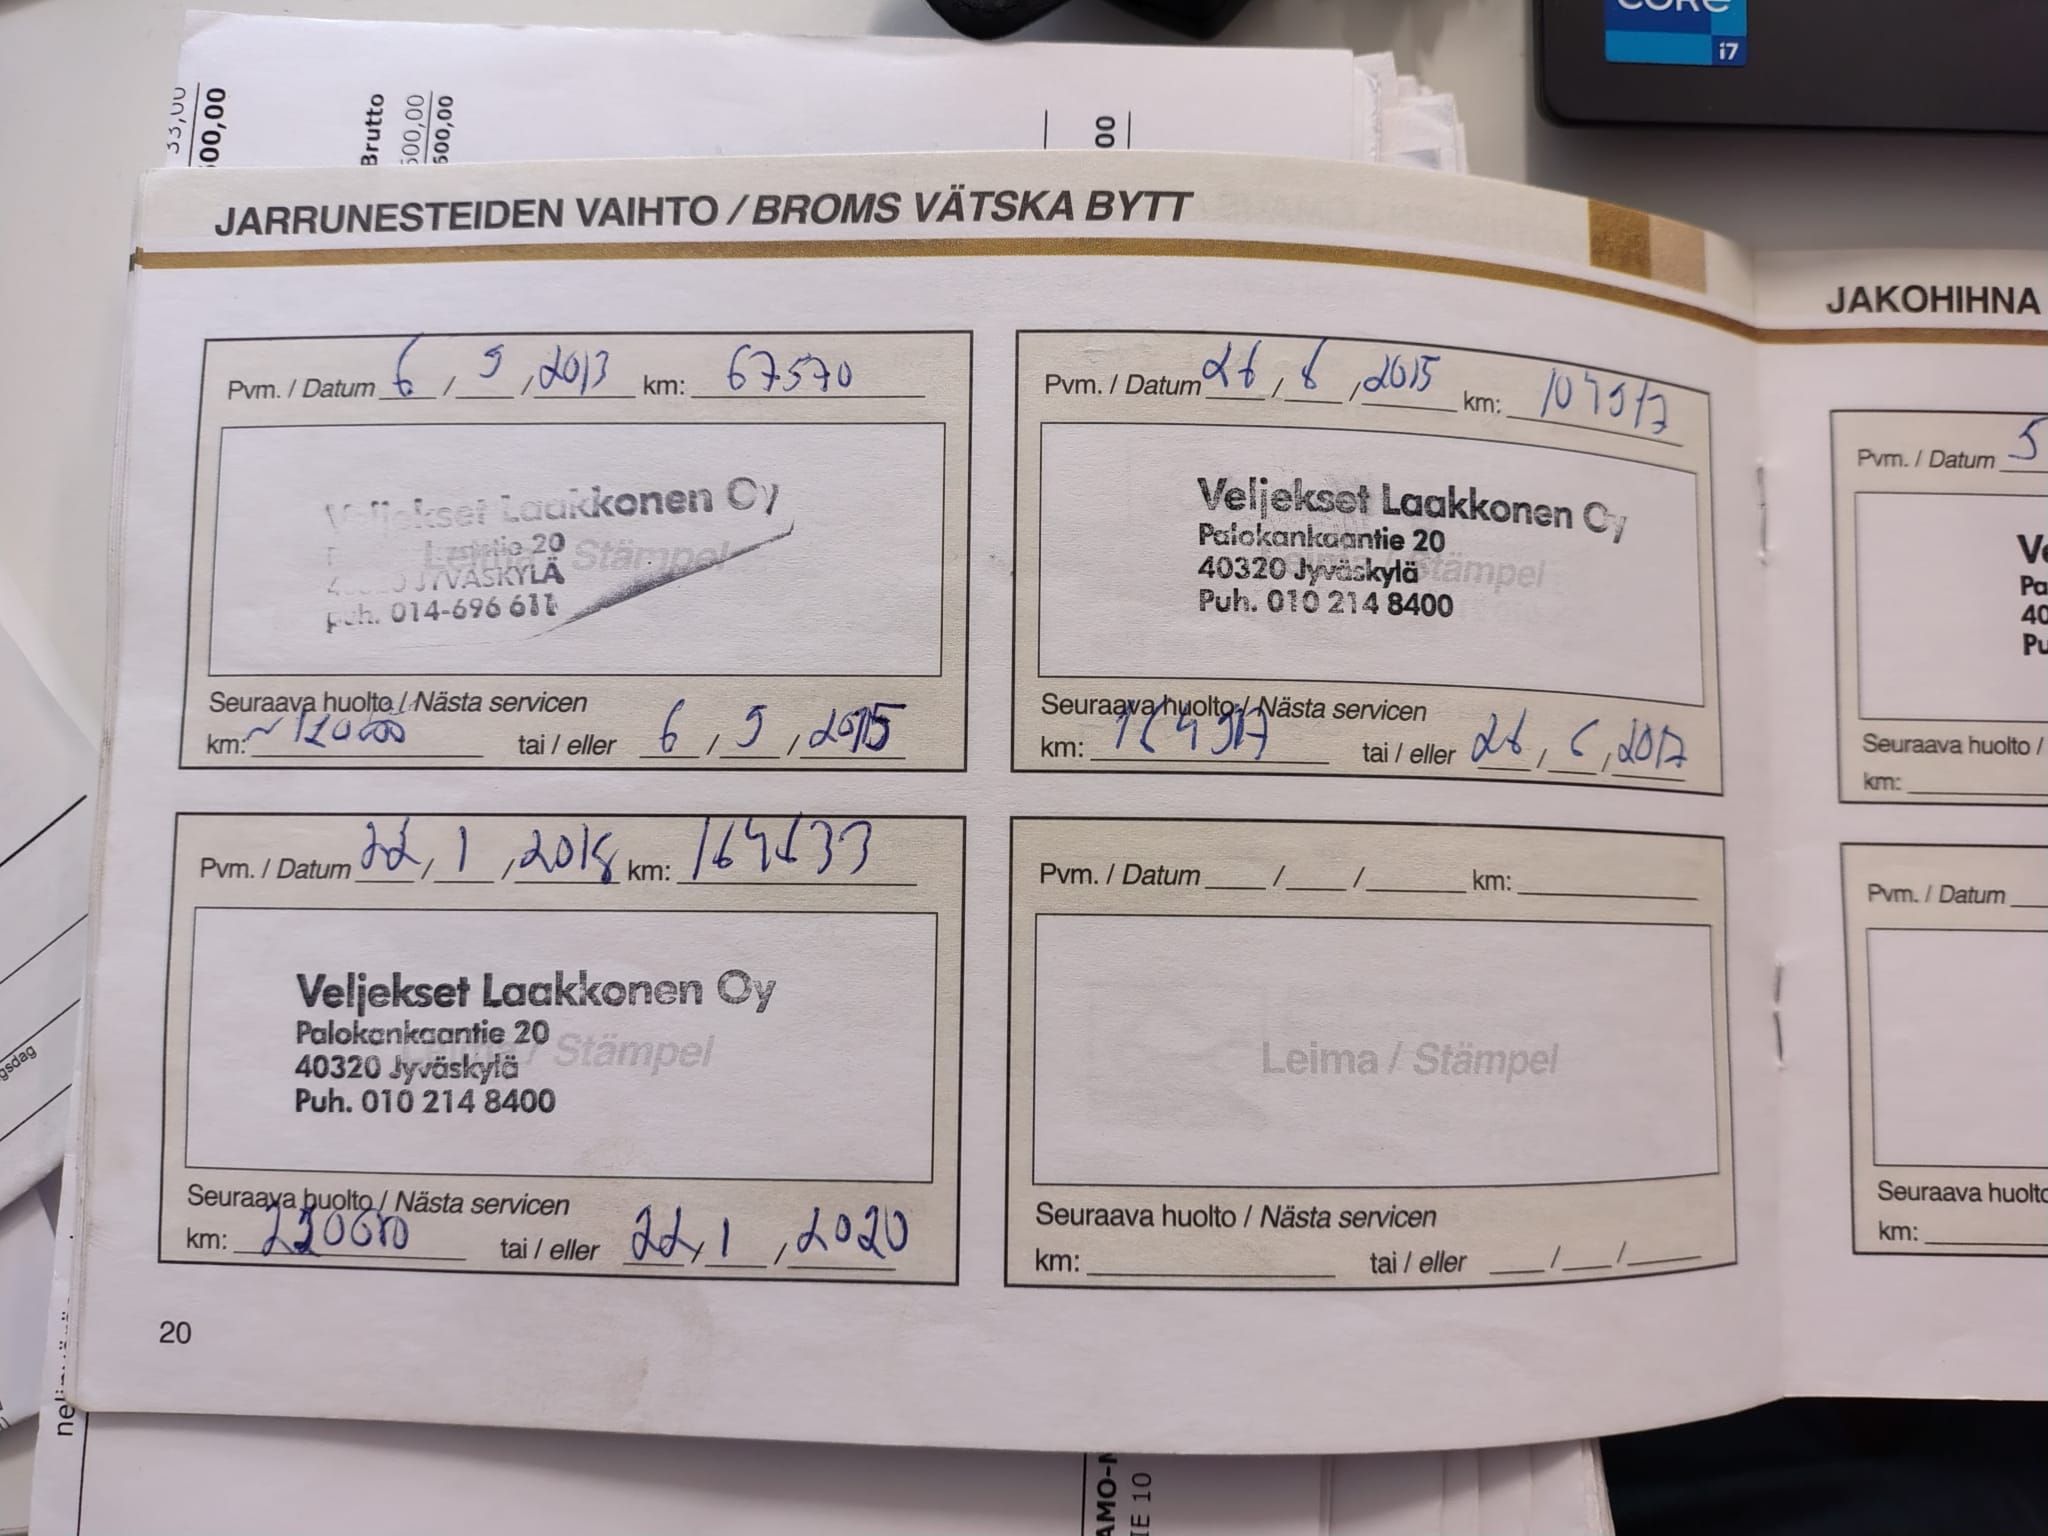 CORE
i7
33,00
600,00
Brutto
600,00
600,00
00
JARRUNESTEIDEN VAIHTO / BROMS VÄTSKA BYTT
Pvm. / Datum 6 / 9 , 2013 km: 67570
Veljekset Laakkonen Oy
Leima / Stämpel
20
JYVÄSKYLÄ
puh. 014-696 611
Seuraava huolto / Nästa servicen
km: ~120000 tai / eller 6 , 9 , 2015
Pvm. / Datum 26 / 6 , 2015 km: 104917
Veljekset Laakkonen Oy
Palokankaantie 20
Leima / Stämpel
40320 Jyväskylä
Puh. 010 214 8400
Seuraava huolto / Nästa servicen
km: 164917 tai / eller 26 , 6 , 2017
Pvm. / Datum 22 , 1 , 2018 km: 164633
Veljekset Laakkonen Oy
Palokankaantie 20
Leima / Stämpel
40320 Jyväskylä
Puh. 010 214 8400
Seuraava huolto / Nästa servicen
km: tai / eller 22 , 1 , 2020
Pvm. / Datum / / km:
Leima / Stämpel
Seuraava huolto / Nästa servicen
km: tai / eller / /
20
JAKOHIHNA
Pvm. / Datum 5
Ve
Pa
40
Pu
Seuraava huolto /
km:
Pvm. / Datum
Seuraava huolto
km:
gsdag
AMO-
IE 10